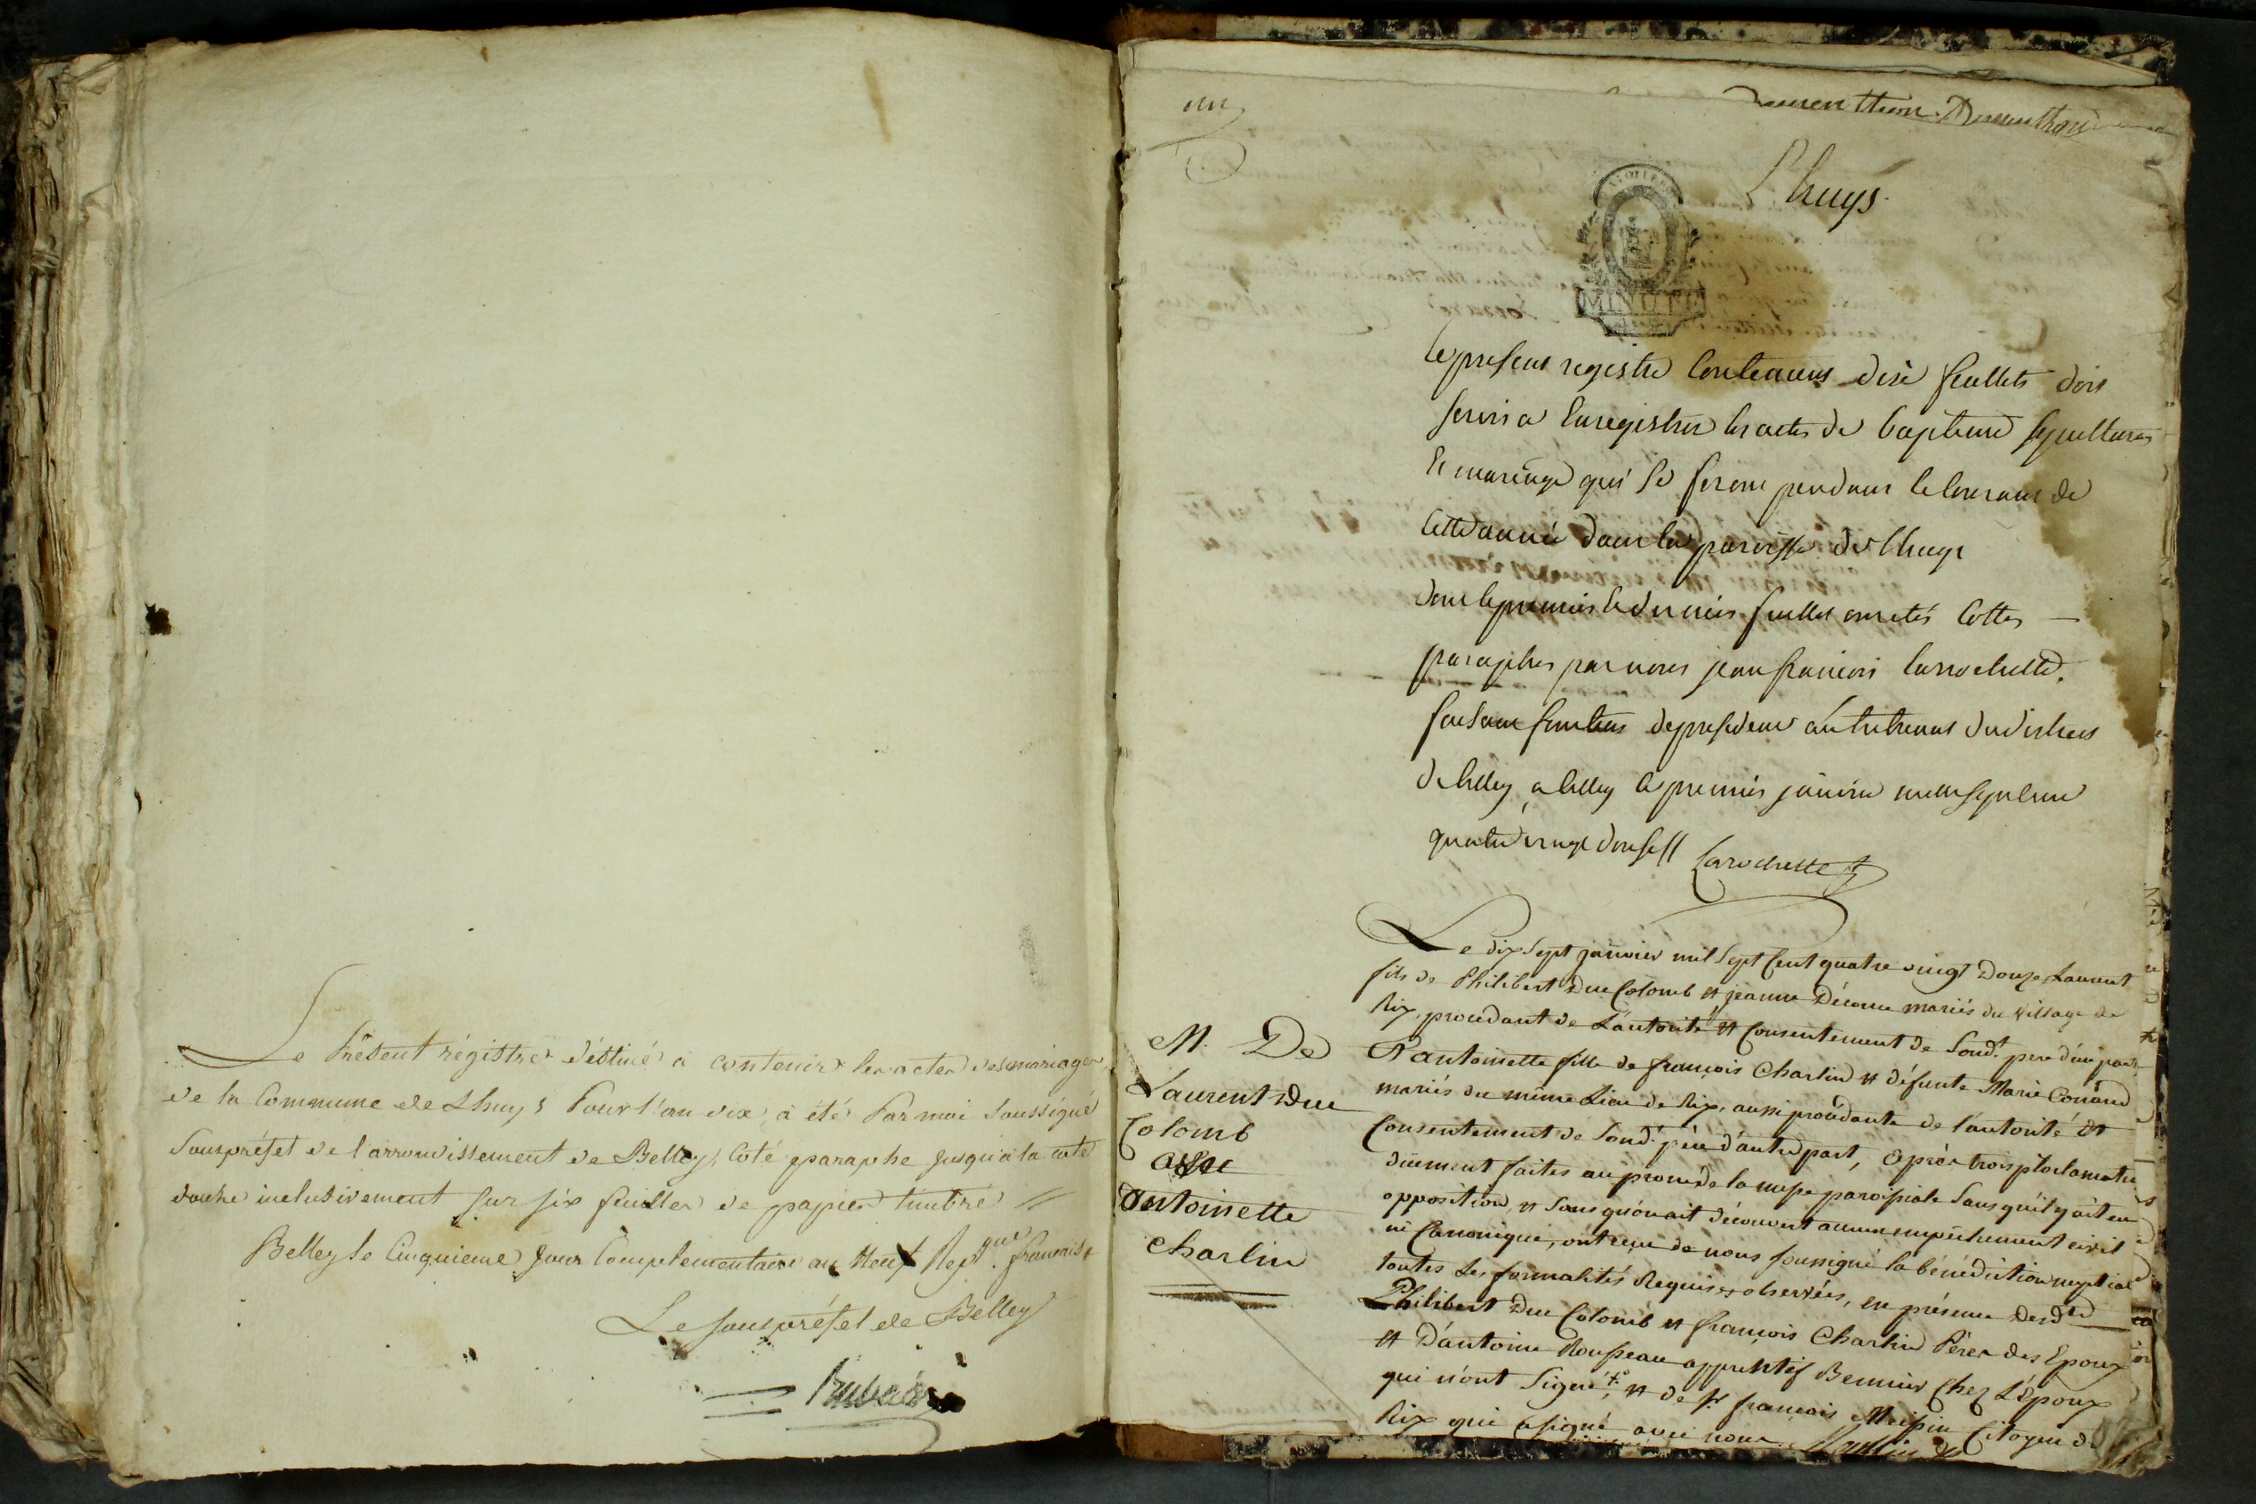 Le Présent régistre déstiné à contenir les actes des mariages
de la Commune de Lhuys Pour l'an dix, a été Par moi Soussigné
Souspréfet de l'arrondissement de Belley, Coté paraphe jusqu'à la cote
douke inclusivement sur six feuilles de papier timbré //
Belley le Cinquieme Jour Complementaire an Neuf Rep.que français
Le souspréfet de Belley
un
L'huys.
MINUTE
le present registre Contenant dix feuillets doit
servir a Enregistrer les actes de bapteme sepultures
Et mariage qui se feront pendant le Courant de
Cette année dans la paroisse de lhuys
dont le premier le dernier feuillet ont etés Cottes —
paraphes par nous jean francois larrochette
faisant fonctions de president au tribunal du district
de belley, a belley le premier janvier mille sept cent
quatre vingt douse // Larrochette
Le dix sept janvier mil sept Cent quatre vingt Douze, Laurent
fils de Philibert Duc Colomb et jeanne Décorne mariés du village de
Rix, procédant de L'autorité et Consentement de Sond.t pere d'une part,
M. De
Et antoinette fille de françois Charlin et défunte Marie Conand
Laurent Duc
mariés du même Lieu de Rix, aussi procédante de l'autorité et
Colomb
Consentement de Sond.t pére d'autre part, après trois proclamations
avec
düement faites au prone de la messe paroissiale sans qu'il y ait eu
Antoinette
opposition, et sans qu'on ait découvert aucun empêchement civil
Charlin
ni Canonique, ont reçu de nous soussigné la bénédiction nuptiale
toutes Les formalités Requises observées, en présence desd.
Philibert Duc Colomb et françois Charlin Péres des Epoux
et D'antoine Rousseau apprentif Bennier Chez L'époux
qui n'ont signé, et de Sr francois Citoyen de
Rix qui a signé avec nous